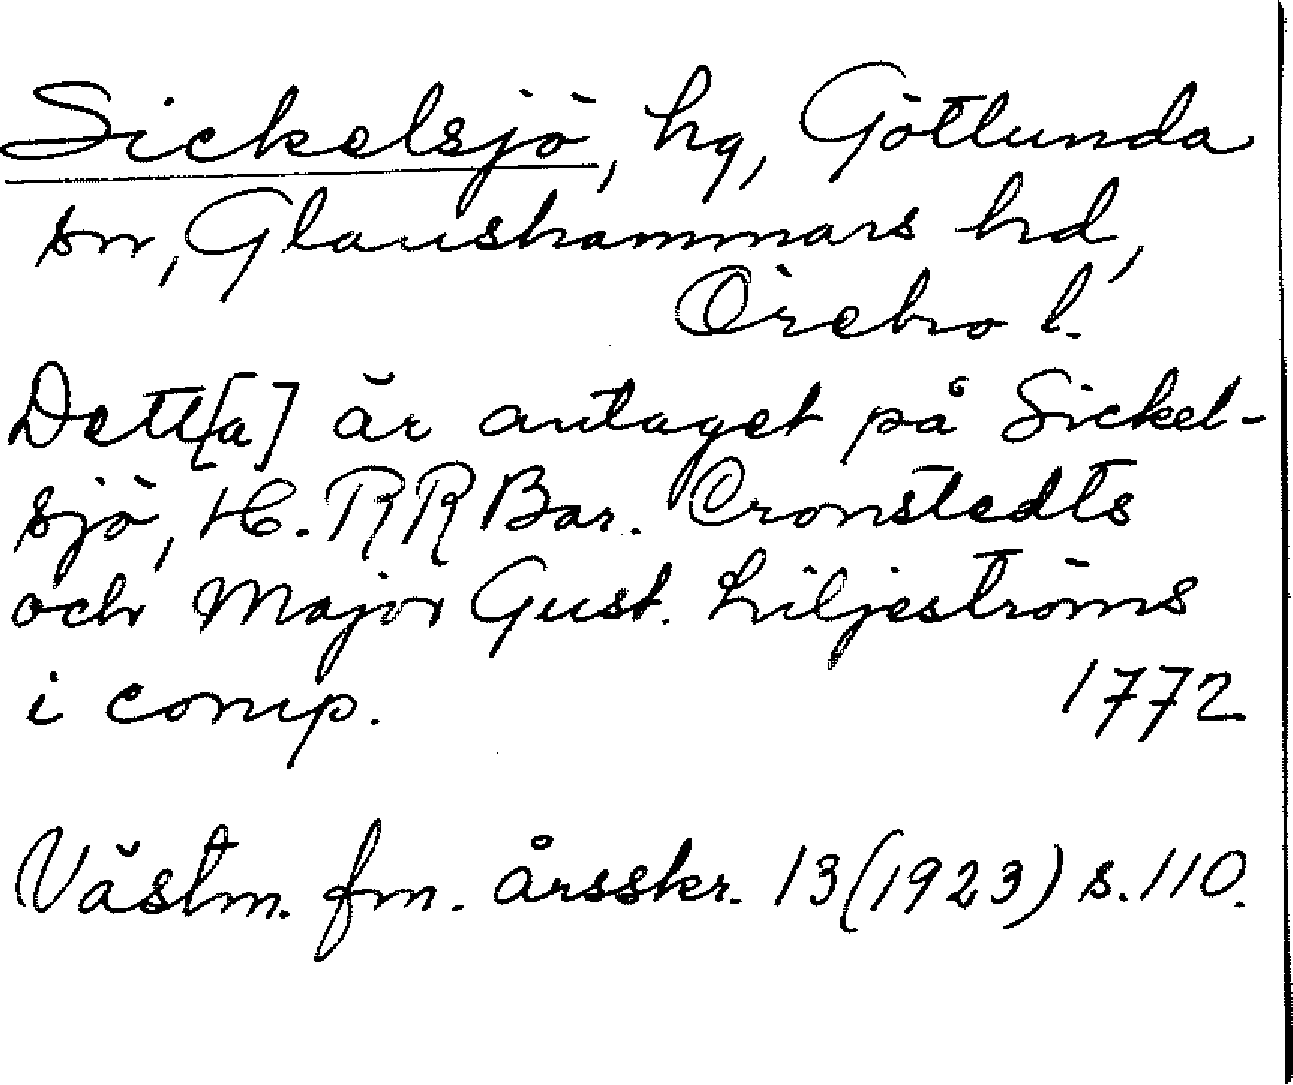 Sickelsjö, hg, Götlunda
sn, Glanshammars hd,
Örebro l.
Dett[a] är antaget på Sickel-
sjö, H. RR Bar. Cronstedts
och Major Gust. Liljeströms
i comp. 1772
Västm. fm. årsskr. 13 (1923) s. 110.